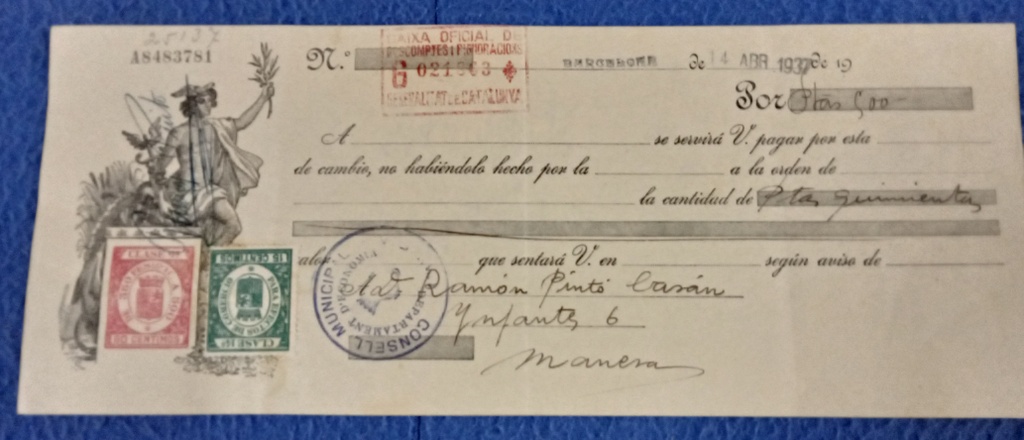 25137
A8483781
CAIXA OFICIAL DE
DESCOMPTES I PIGNORACIONS
G 021963
GENERALITAT DE CATALUNYA
N.º BARCELONA de 14 ABR 1937 de 19
Por Ptas 500
A se servirá V. pagar por esta
de cambio, no habiéndolo hecho por la a la orden de
la cantidad de Ptas quinientas
alor que sentará V. en según aviso de
A D. Ramón Pintó
6
Manresa
CONSELL MUNICIPAL
DEPARTAMENT D'ECONOMIA
CLASE
15 CENTIMOS
PARA EFECTOS DE COMERCIO
CLASE 11ª